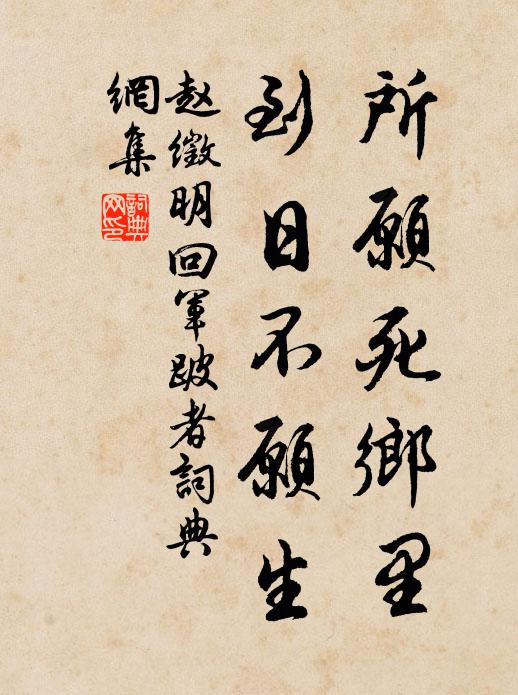 所願死鄉里
到日不願生
赵徵明回軍跛者詞典
網集
詞典
网印